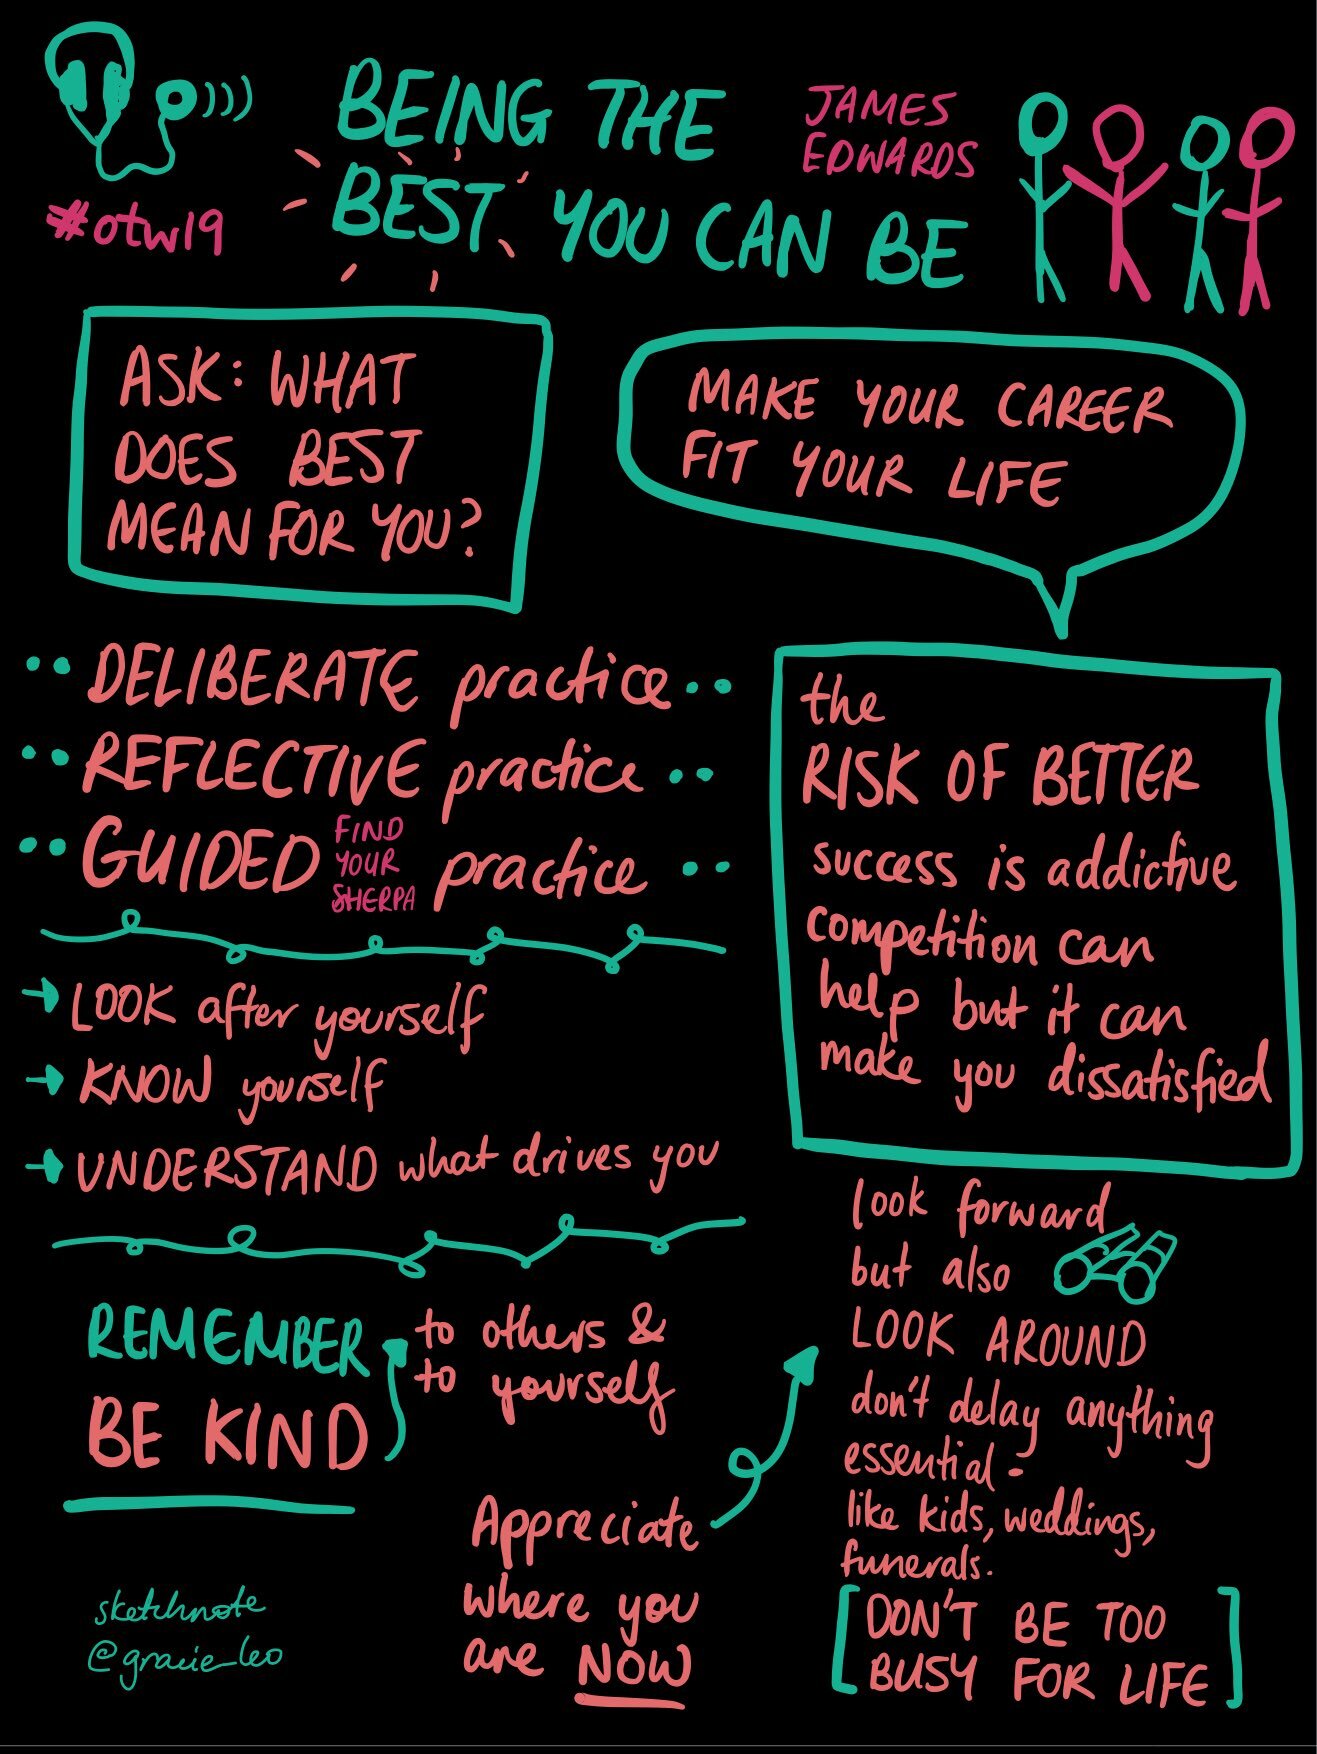 BEING THE
BEST YOU CAN BE
JAMES
EDWARDS
#otw19
ASK: WHAT
DOES BEST
MEAN FOR YOU?
MAKE YOUR CAREER
FIT YOUR LIFE
DELIBERATE practice
REFLECTIVE practice
GUIDED FIND YOUR SHERPA practice
the
RISK OF BETTER
success is addictive
competition can
help but it can
make you dissatisfied
LOOK after yourself
KNOW yourself
UNDERSTAND what drives you
REMEMBER
BE KIND
to others &
to yourself
Appreciate
where you
are NOW
look forward
but also
LOOK AROUND
don't delay anything
essential -
like kids, weddings,
funerals.
[DON'T BE TOO
BUSY FOR LIFE]
sketchnote
@gracie_leo